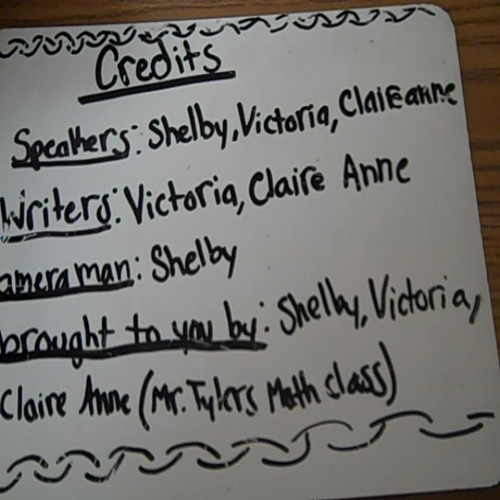 Credits
Speakers: Shelby, Victoria, Claireanne
Writers: Victoria, Claire Anne
ameraman: Shelby
brought to you by: Shelby, Victoria,
Claire Anne (Mr. Tylers Math class)